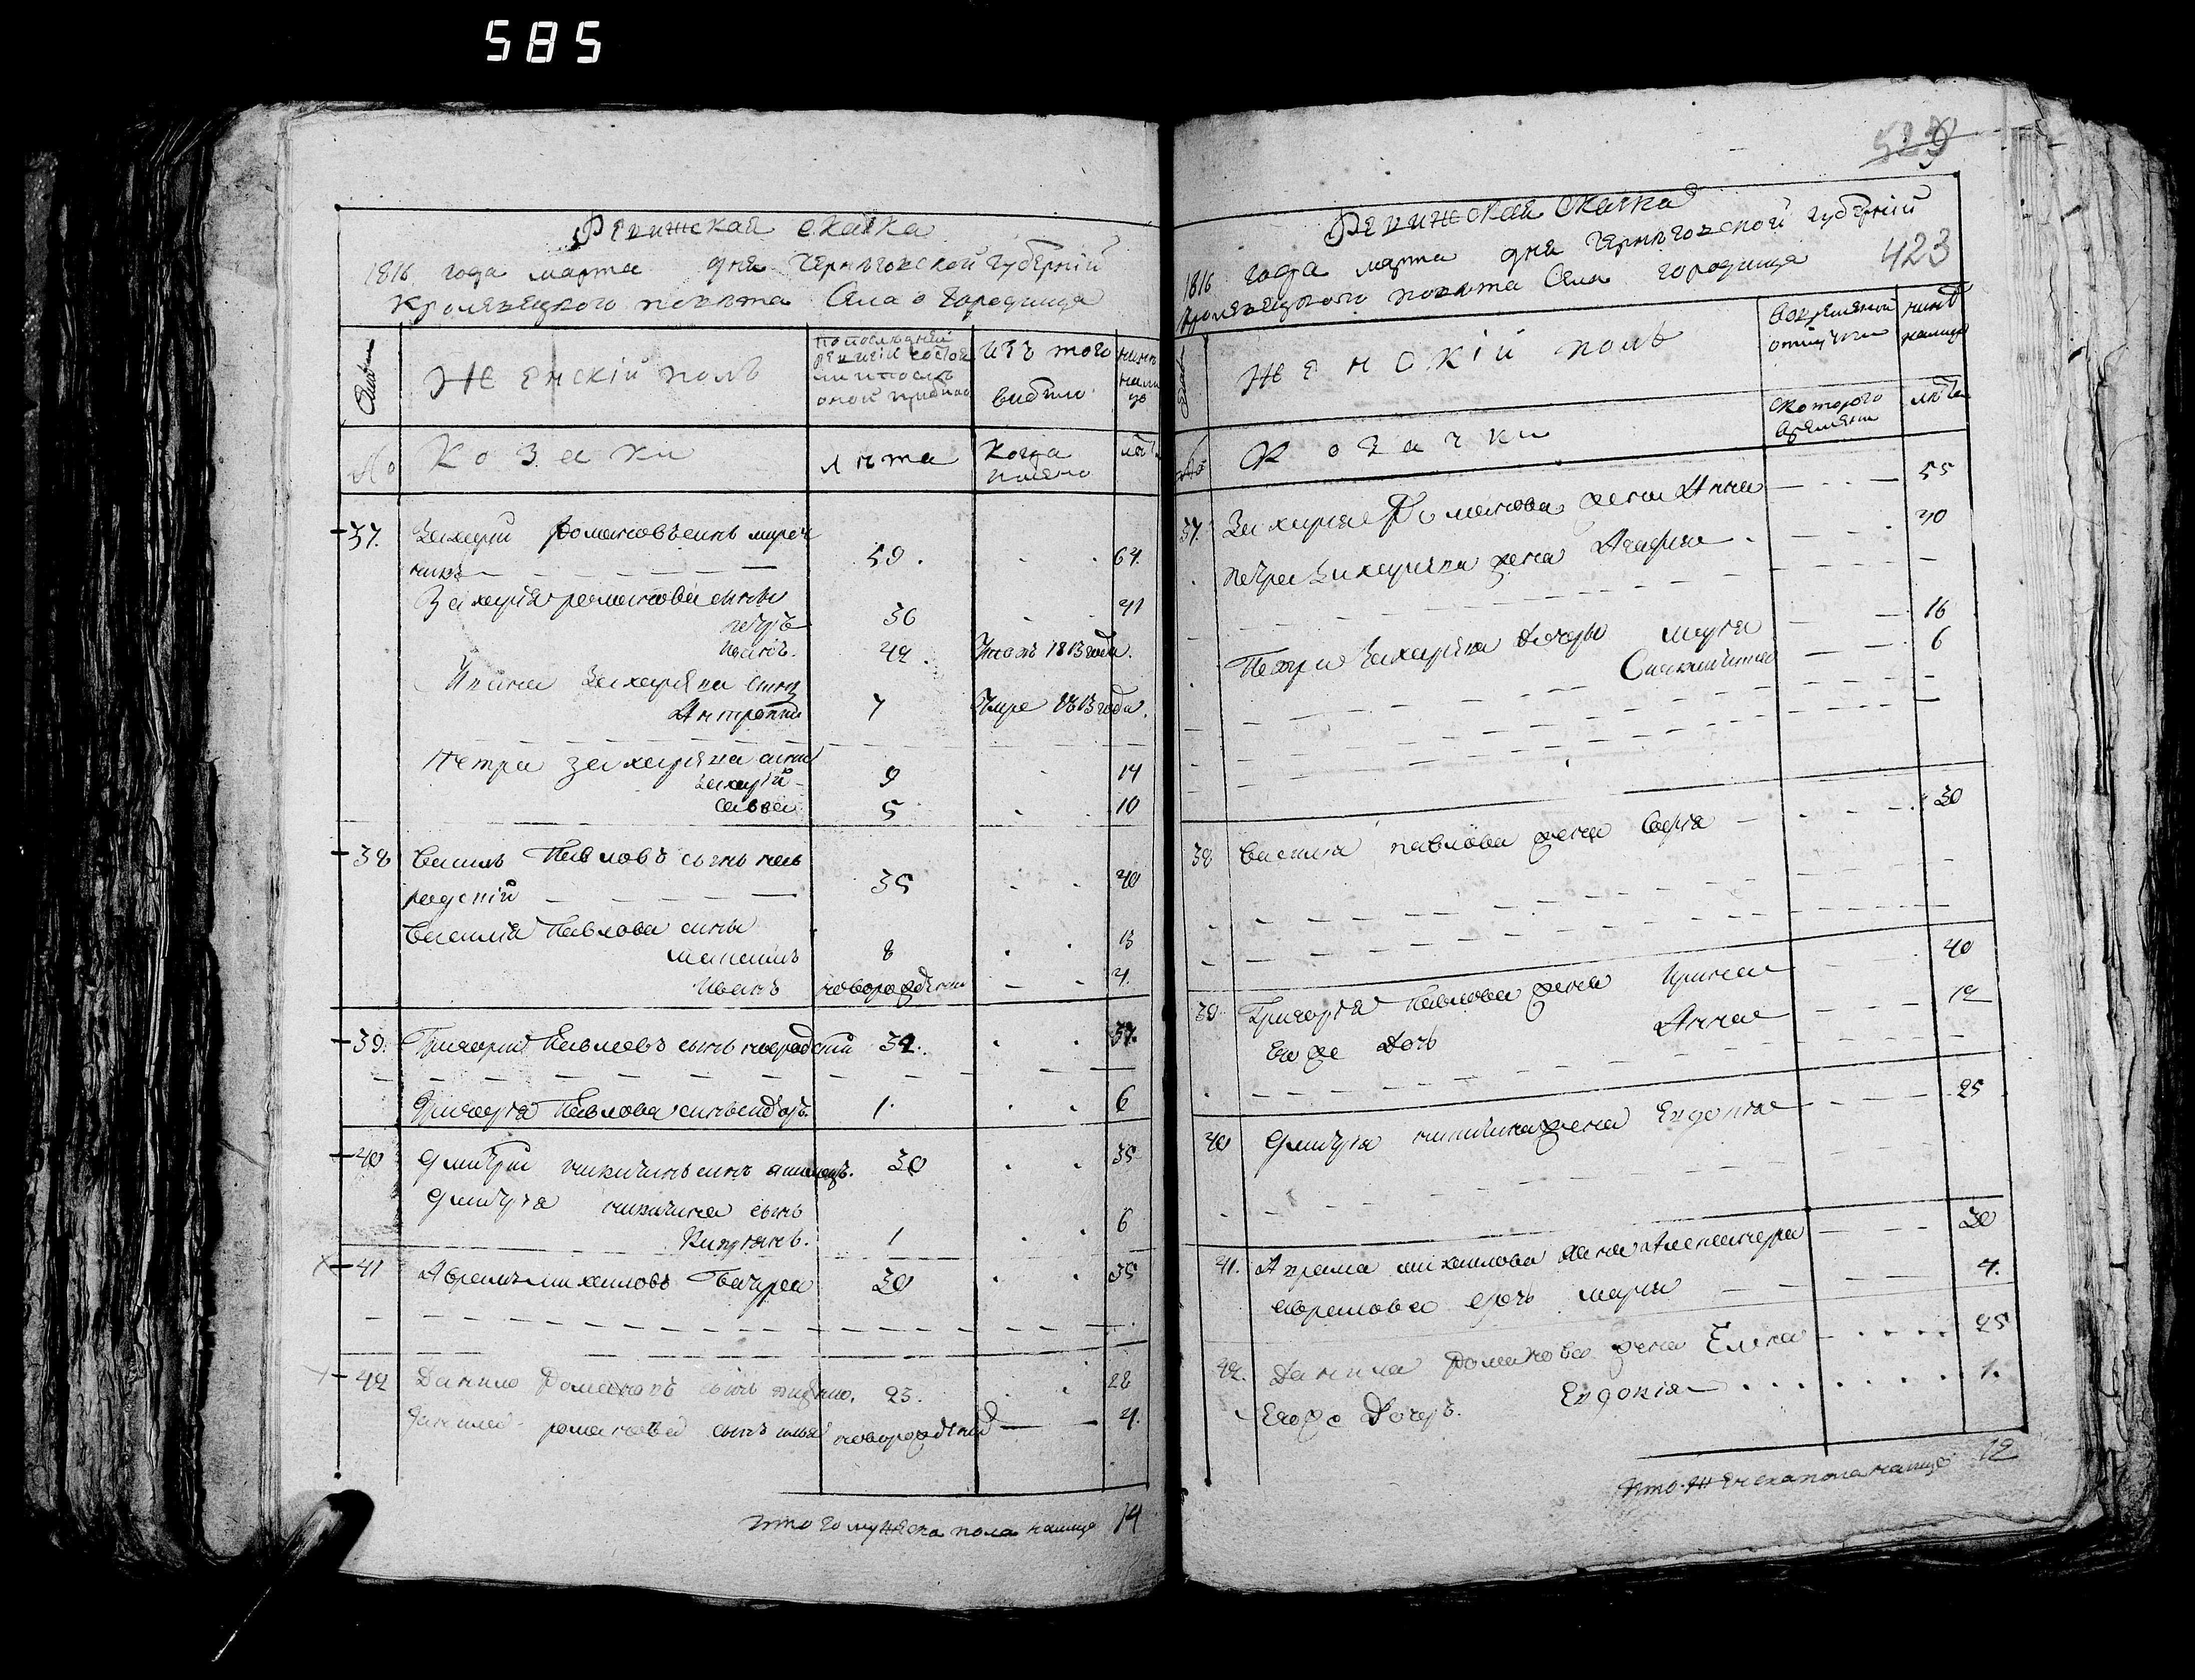 585
Ревижская скаска
1816 года марта дня Черниговской губернiй
Кролевецкого повѣта Села Городища
Семьи
Женскiй полъ
по последней
ревизiи состоя
ло и после
оной прибило
изъ того
вибило
нинѣ
на ли
цо
№
Козаки
Лѣта
Когда
имяно
лѣта
37.
Захарiй Романовъ синъ
59.
64.
Захарiя романова сины
петръ
36
41
иванъ.
42.
1813 года.
Ивана Захарiева синъ
Антропъ
7
Умре 1813 года.
Петра Захарiева сини
Захарiй
9
14
савва
5
10
38
Василь Павловъ сынъ
35
40
Василiя Павлова сины
8
13
Иванъ
новорожденъ
4.
39.
Григорiй Павловъ сынъ
32.
37.
Григорiя Павлова синъ
1.
6
40
Дмитрiй никитинъ синъ
30
35
Дмитрiя никитина сынъ
1
6
41
Аврамъ михаиловъ
30
35
42
Данило Романовъ сынъ
23.
28
Данила романова сынъ илья
новорожденъ
4.
итого мужеска пола налицо 14
529
423
Ревижская скаска
1816 года марта дня Черниговской губернiй
Кролевецкого повѣта Села городища
Женскiй полъ
во временной
отлучки
нинѣ
налицо
№
Козачки
Скоторого
времени
лѣта
37.
Захарiя Романова жена Анна
55
Петра Захарiева жена Агафiя
40
Петра Захарiева дочери марiя
16
6
38
Василiя павлова жена Софiя
30
39.
Григорiя Павлова жена Ирина
40
Его же Дочь Анна
12
40
Дмитрiя никитина жена Евдокiя
25
41.
Аврама михаилова жена Александра
30
аврамова дочь марiя
4.
42.
Данила Романова жена Елена
25
Его же Дочерь. Евдокiя
1.
итого женска пола налицо 12